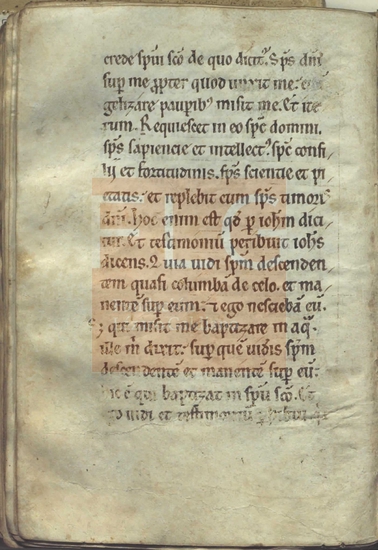 crede spiũ scõ de quo dicit᷒. Sp̃s dñi
sup̱ me p̱pter quod unxit me. e
gelizare paupib᷒ misit me. Et ite
rum. Requiescet in eo sp̃c domini.
sp̃s sapiencie et intellect᷒. sp̃c consi
lij et fortitudinis. sp̃s scientie et pi
etatis. et replebit eum sp̃s timoris
dñi. hoc enim est qd̃ p̱ ioh̃m dici
tur. Et testimoniũ peribuit ioh̃s
dicens. Quia vidi sp̃m descenden
tem quasi columba de celo. et ma
nentẽ sup̱ eum. ⁊ ego nesciebã eũ.
s; qui misit me baptizare in aq̃.
ille m̃ dixit. sup̱ quẽ videris sp̃m
descendentẽ et manentẽ sup̱ eũ.
hic ẽ qui baptizat in spũ scõ. Et
ego vidi et testimoniũ p̱hibui